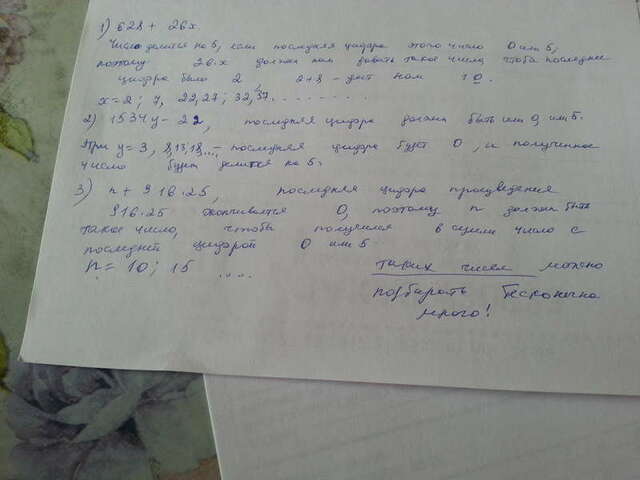 1) 628 + 26x
Число делится на 5, если последняя цифра этого число 0 или 5,
поэтому 26·x должна нам давать такое число, чтоб последнее
цифра было 2 2+8 - даёт нам 10.
x = 2; 7, 22, 27; 32, 37. . . . . . . .
2) 1534y - 22, последняя цифра должна быть или 0, или 5.
При y = 3, 8, 13, 18, ... - последняя цифра будет 0, и полученное
число будет делится на 5.
3) n + 916·25, последняя цифра произведения
916·25 оканчивается 0, поэтому n должна быть
такое число, чтобы получился в сумме число с
последней цифрой 0 или 5
n = 10; 15 ....
таких чисел можно
подбирать бесконечно
много!